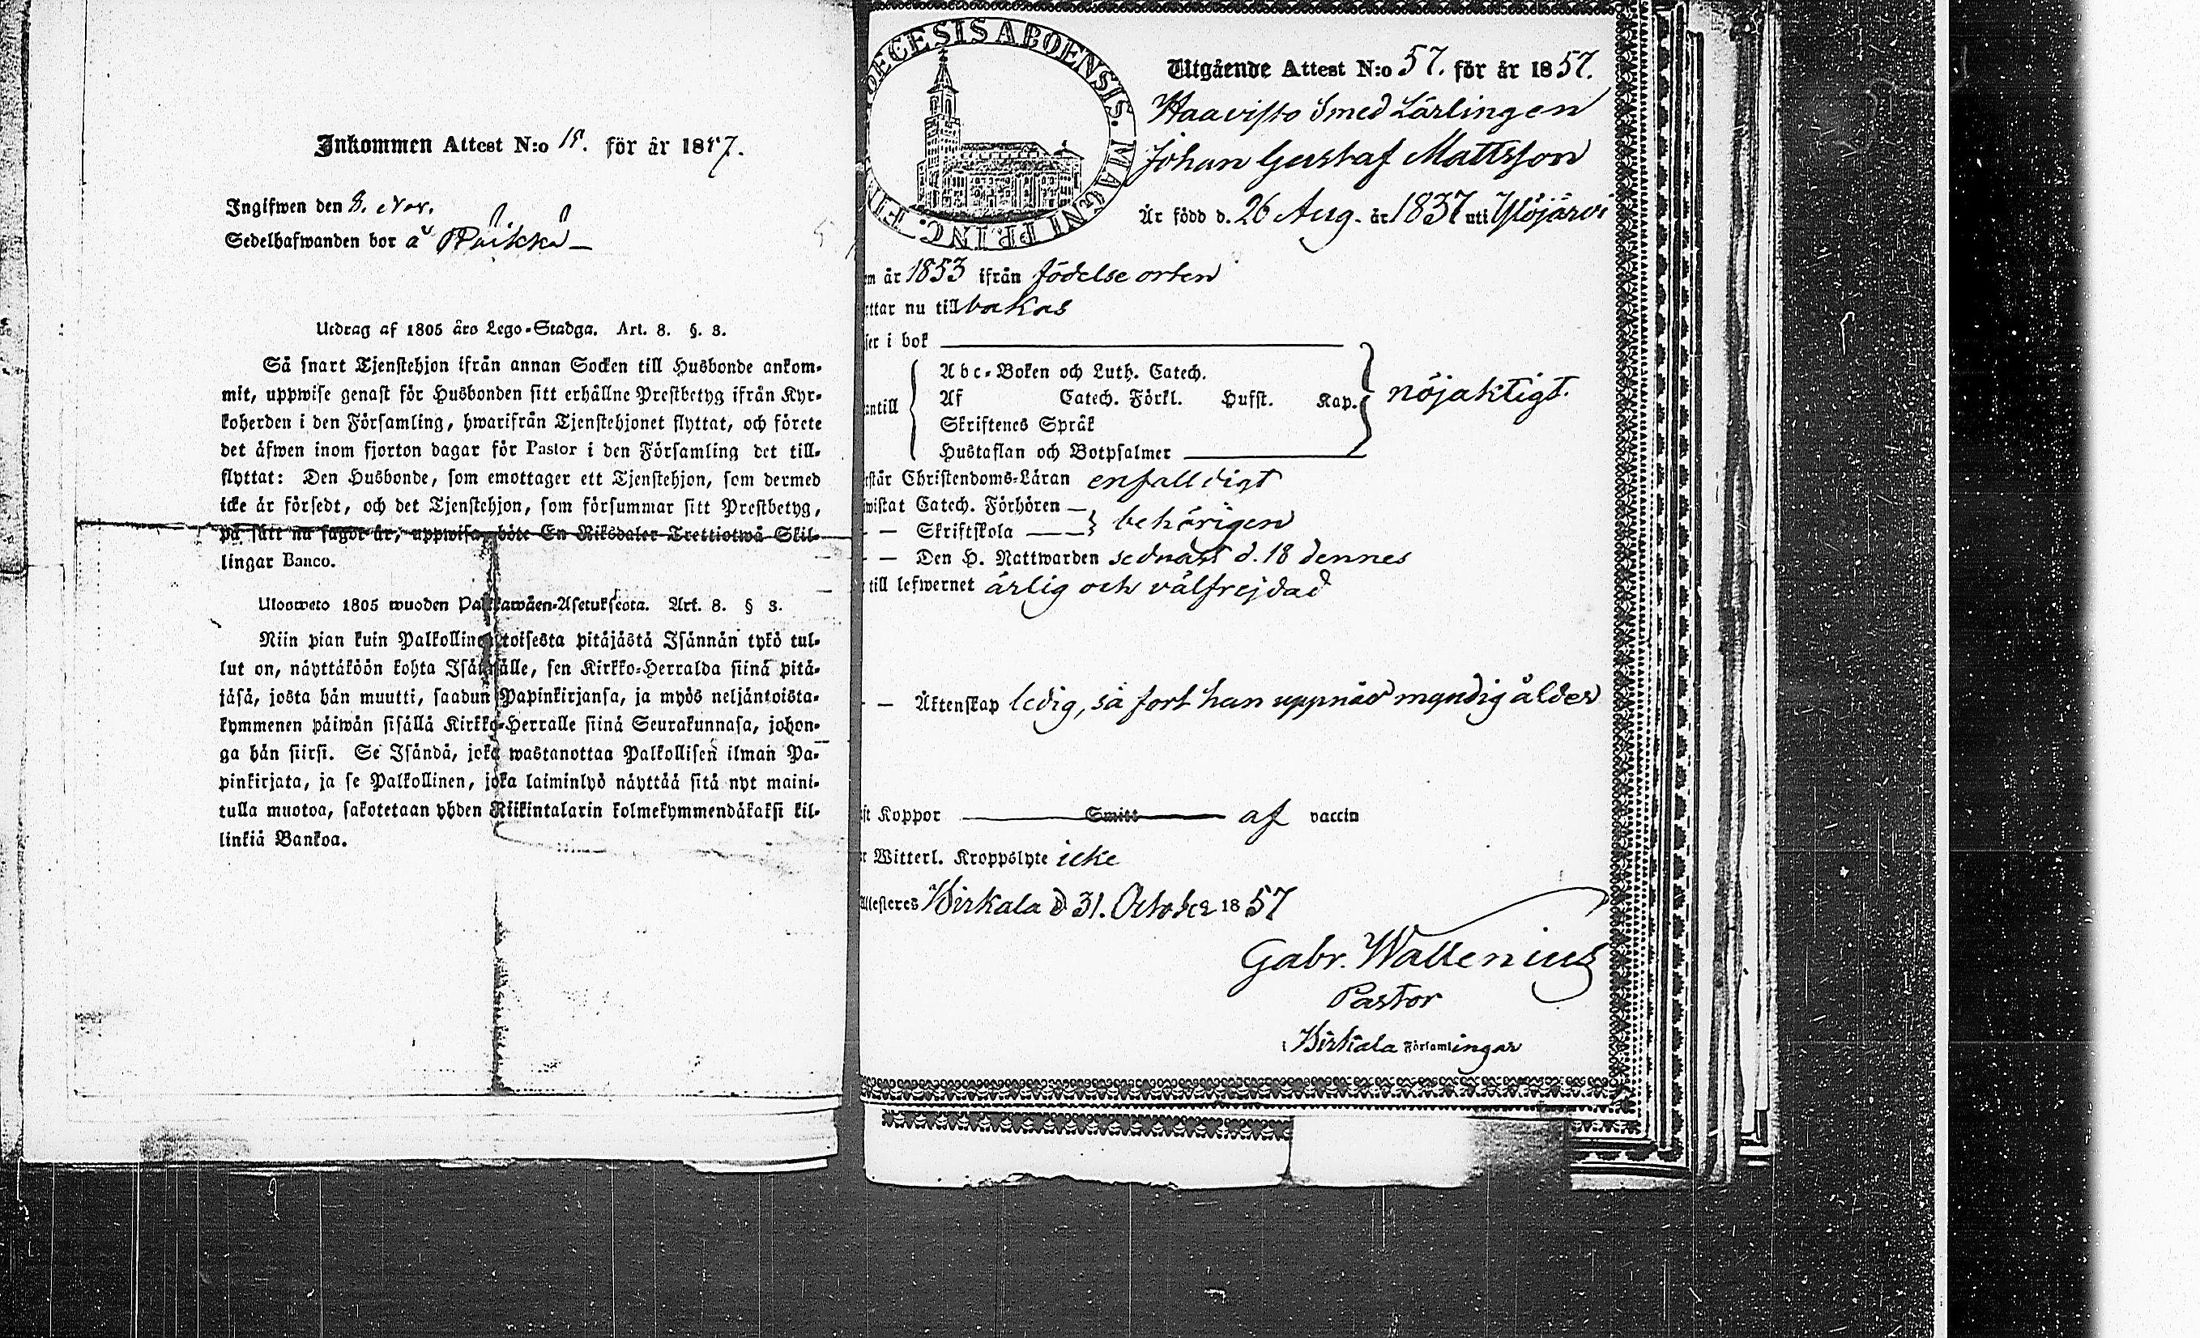 Inkommen Attest N:o 18. för år 1857.
Ingifwen den 8. Nov.
Sedelhafwanden bor å Räikkä
Utdrag af 1805 års Lego-Stadga. Art. 8. §. 3.
Så snart Tjenstehjon ifrån annan Socken till Husbonde ankom-
mit, uppwise genast för Husbonden sitt erhållne Prestbetyg ifrån Kyr-
koherden i den Församling, hwarifrån Tjenstehjonet flyttat, och förete
det äfwen inom fjorton dagar för Pastor i den Församling det till-
flyttat: Den Husbonde, som emottager ett Tjenstehjon, som dermed
icke är försedt, och det Tjenstehjon, som försummar sitt Prestbetyg,
på sätt nu sagdt är, uppwisa, böte En Riksdaler Trettiotwå Skil-
lingar Banco.
Ulosweto 1805 wuoden Palkawäen-Asetuksesta. Art. 8. § 3.
Niin pian kuin Palkollinen toisesta pitäjästä Isännän tykö tul-
lut on, näyttäköön kohta Isännälle, sen Kirkko-Herralda siinä pitä-
jäsä, josta hän muutti, saadun Papinkirjansa, ja myös neljäntoista-
kymmenen päiwän sisällä Kirkko-Herralle siinä Seurakunnasa, johon-
ga hän siirsi. Se Isändä, joka wastanottaa Palkollisen ilman Pa-
pinkirjata, ja se Palkollinen, joka laiminlyö näyttää sitä nyt maini-
tulla muotoa, sakotetaan yhden Riikintalarin kolmekymmendäkaksi kil-
linkiä Bankoa.
DECESIS ABOENSIS. MAGNI PRINC. FIN
Utgående Attest N:o 57. för år 1857.
Haavisto Smed Lärlingen
Johan Gustaf Mattsson
Är född d. 26 Aug. år 1837 uti Ylöjärvi
m år 1853 ifrån födelse orten
ttar nu tillbakas
ser i bok
Abc-Boken och Luth. Catech.
antill Af Catech. Förkl. Husst. Kap. nöjaktigt.
Skriftenes Språk
Hustaflan och Botpsalmer
står Christendoms-Läran enfalldigt
wistat Catech. Förhören
— Skriftskola behörigen
— — Den H. Nattwarden sednast d. 18 dennes
till lefwernet ärlig och välfrejdad
— — Äktenskap ledig, så fort han uppnår myndig ålder
st Koppor Smitt af vaccin
r Witterl. Kroppslyte icke
Attesteres Birkala d 31. October 1857
Gabr. Wallenius
Pastor
i Birkala Församlingar